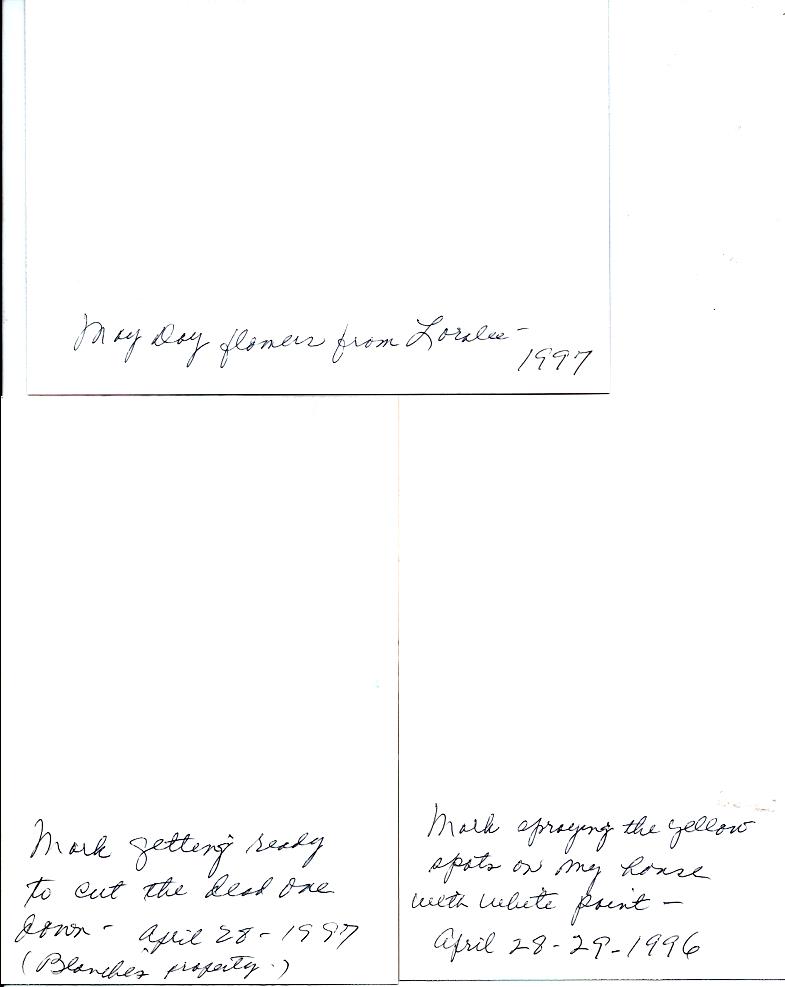 May Day flowers from Loralee -
1997
Mark getting ready
to cut the dead one
down - April 28 - 1997
(Blanches property.)
Mark spraying the yellow
spots on my house
with white paint -
April 28 - 29 - 1996